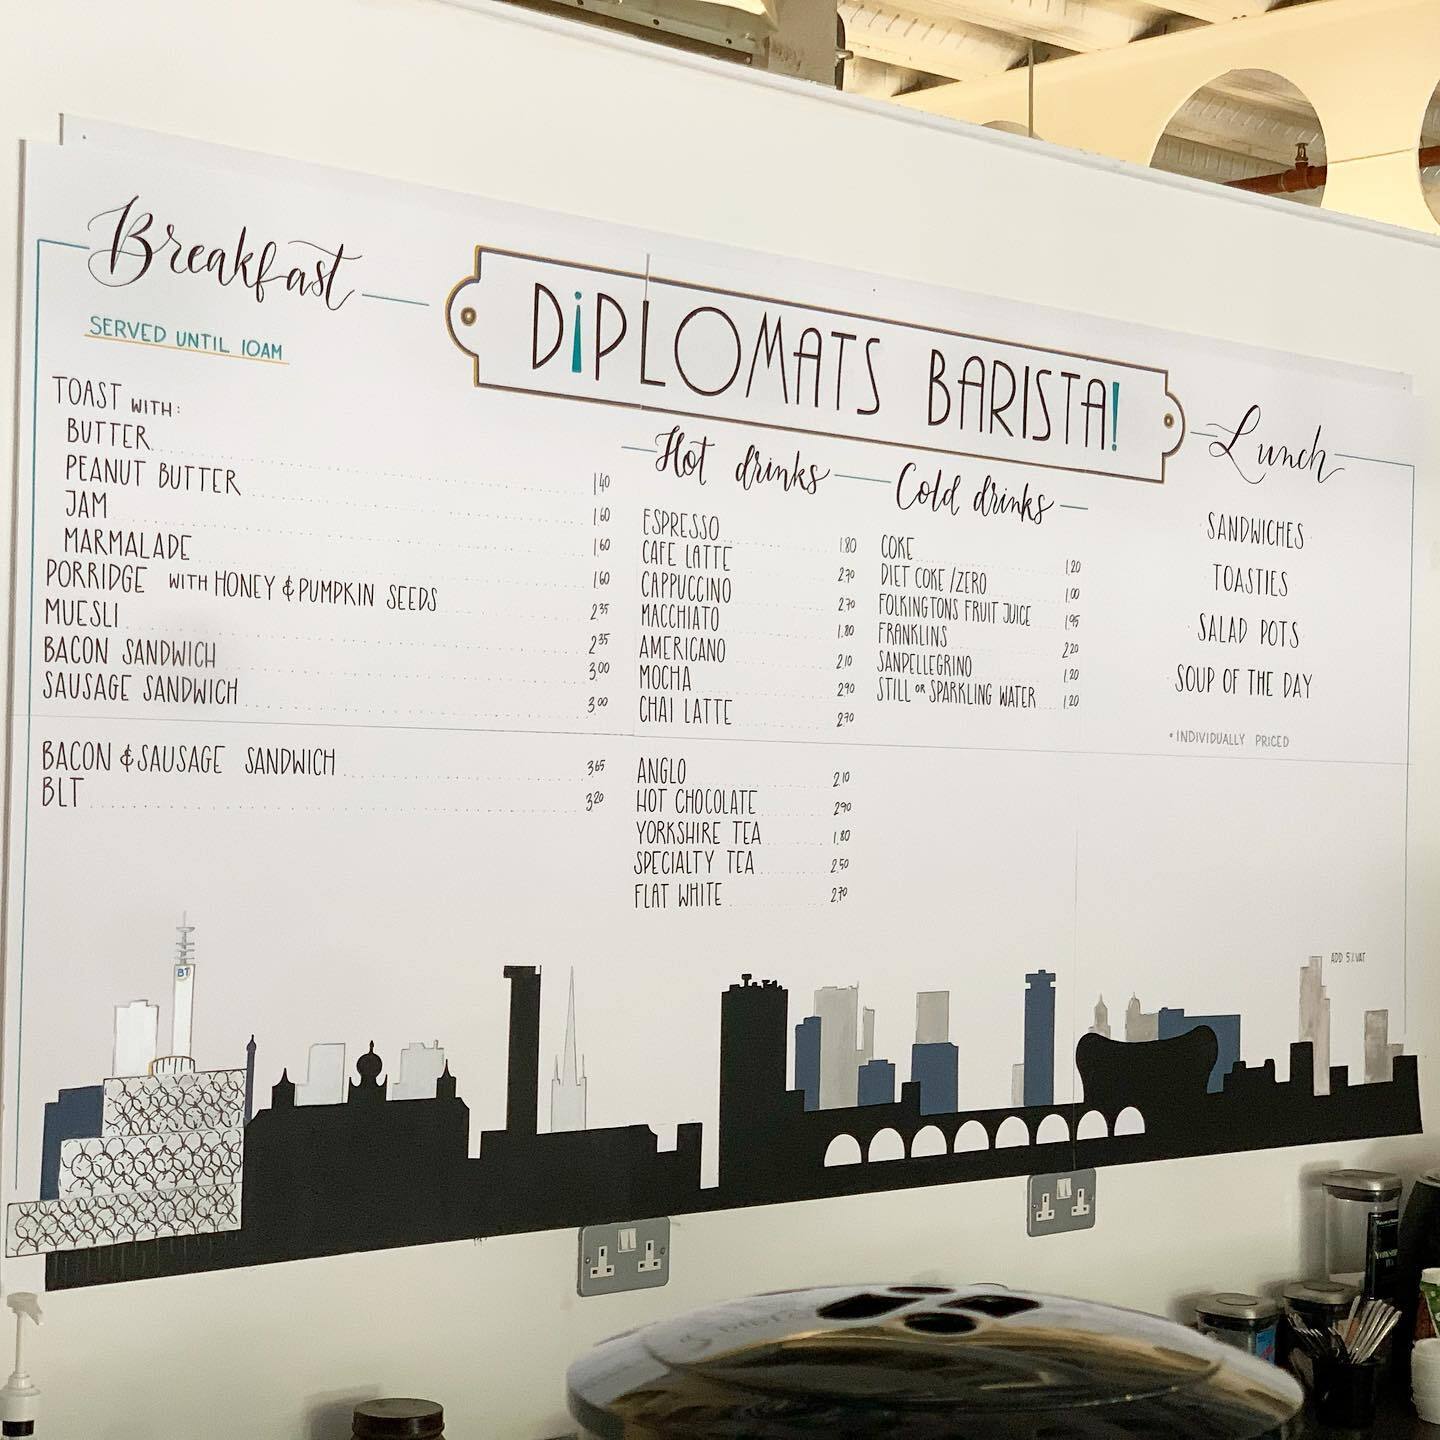 Breakfast
SERVED UNTIL 10AM
TOAST WITH:
BUTTER 1.40
PEANUT BUTTER 1.60
JAM 1.60
MARMALADE 1.60
PORRIDGE WITH HONEY & PUMPKIN SEEDS 2.35
MUESLI 2.35
BACON SANDWICH 3.00
SAUSAGE SANDWICH 3.00
BACON & SAUSAGE SANDWICH 3.65
BLT 3.20
DiPLOMATS BARISTA!
Hot drinks
ESPRESSO 1.80
CAFE LATTE 2.70
CAPPUCCINO 2.70
MACCHIATO 1.80
AMERICANO 2.10
MOCHA 2.90
CHAI LATTE 2.70
ANGLO 2.10
HOT CHOCOLATE 2.90
YORKSHIRE TEA 1.80
SPECIALTY TEA 2.50
FLAT WHITE 2.70
Cold drinks
COKE 1.20
DIET COKE/ZERO 1.00
FOLKINGTONS FRUIT JUICE 1.95
FRANKLINS 2.20
SANPELLEGRINO 1.20
STILL OR SPARKLING WATER 1.20
Lunch
SANDWICHES
TOASTIES
SALAD POTS
SOUP OF THE DAY
* INDIVIDUALLY PRICED
ADD 5% VAT
BT